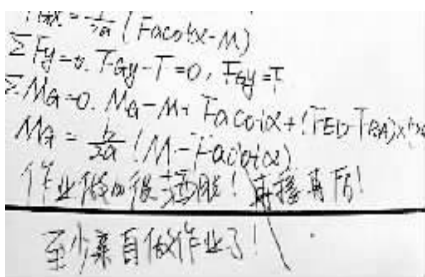 (Facotα-M)
ΣFy=0. FGy-T=0, FGy=T
MG=0. MG-M+Facotα+(FED-FBA)×
MG = b/2a (M-Facotα)
作业做的很洒脱！再接再厉！
至少亲自做作业了！